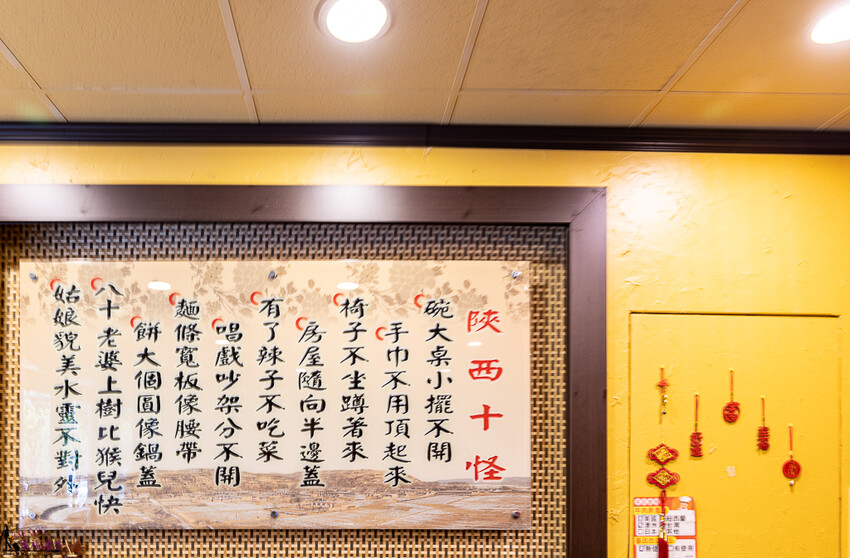 陝西十怪
碗大桌小擺不開
手巾不用頂起來
椅子不坐蹲著來
房屋隨向半邊蓋
有了辣子不吃菜
唱戲吵架分不開
麵條寬板像腰帶
餅大個圓像鍋蓋
八十老婆上樹比猴兒快
姑娘貌美水靈不對外
美國
紐西蘭
日本